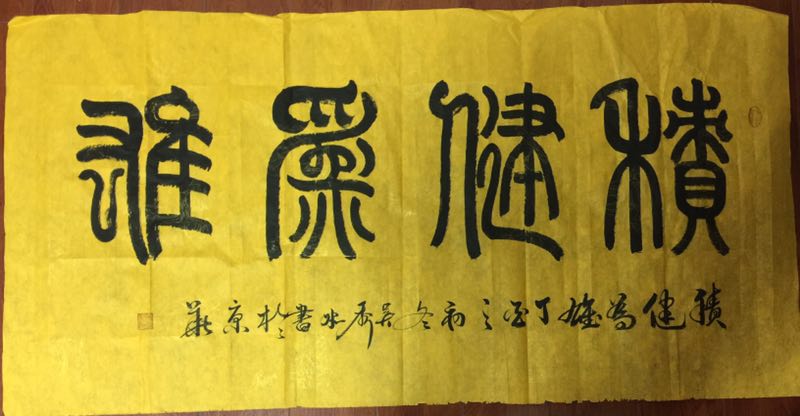 積健為雄
積健為雄丁酉之初冬吴秀水書於京華